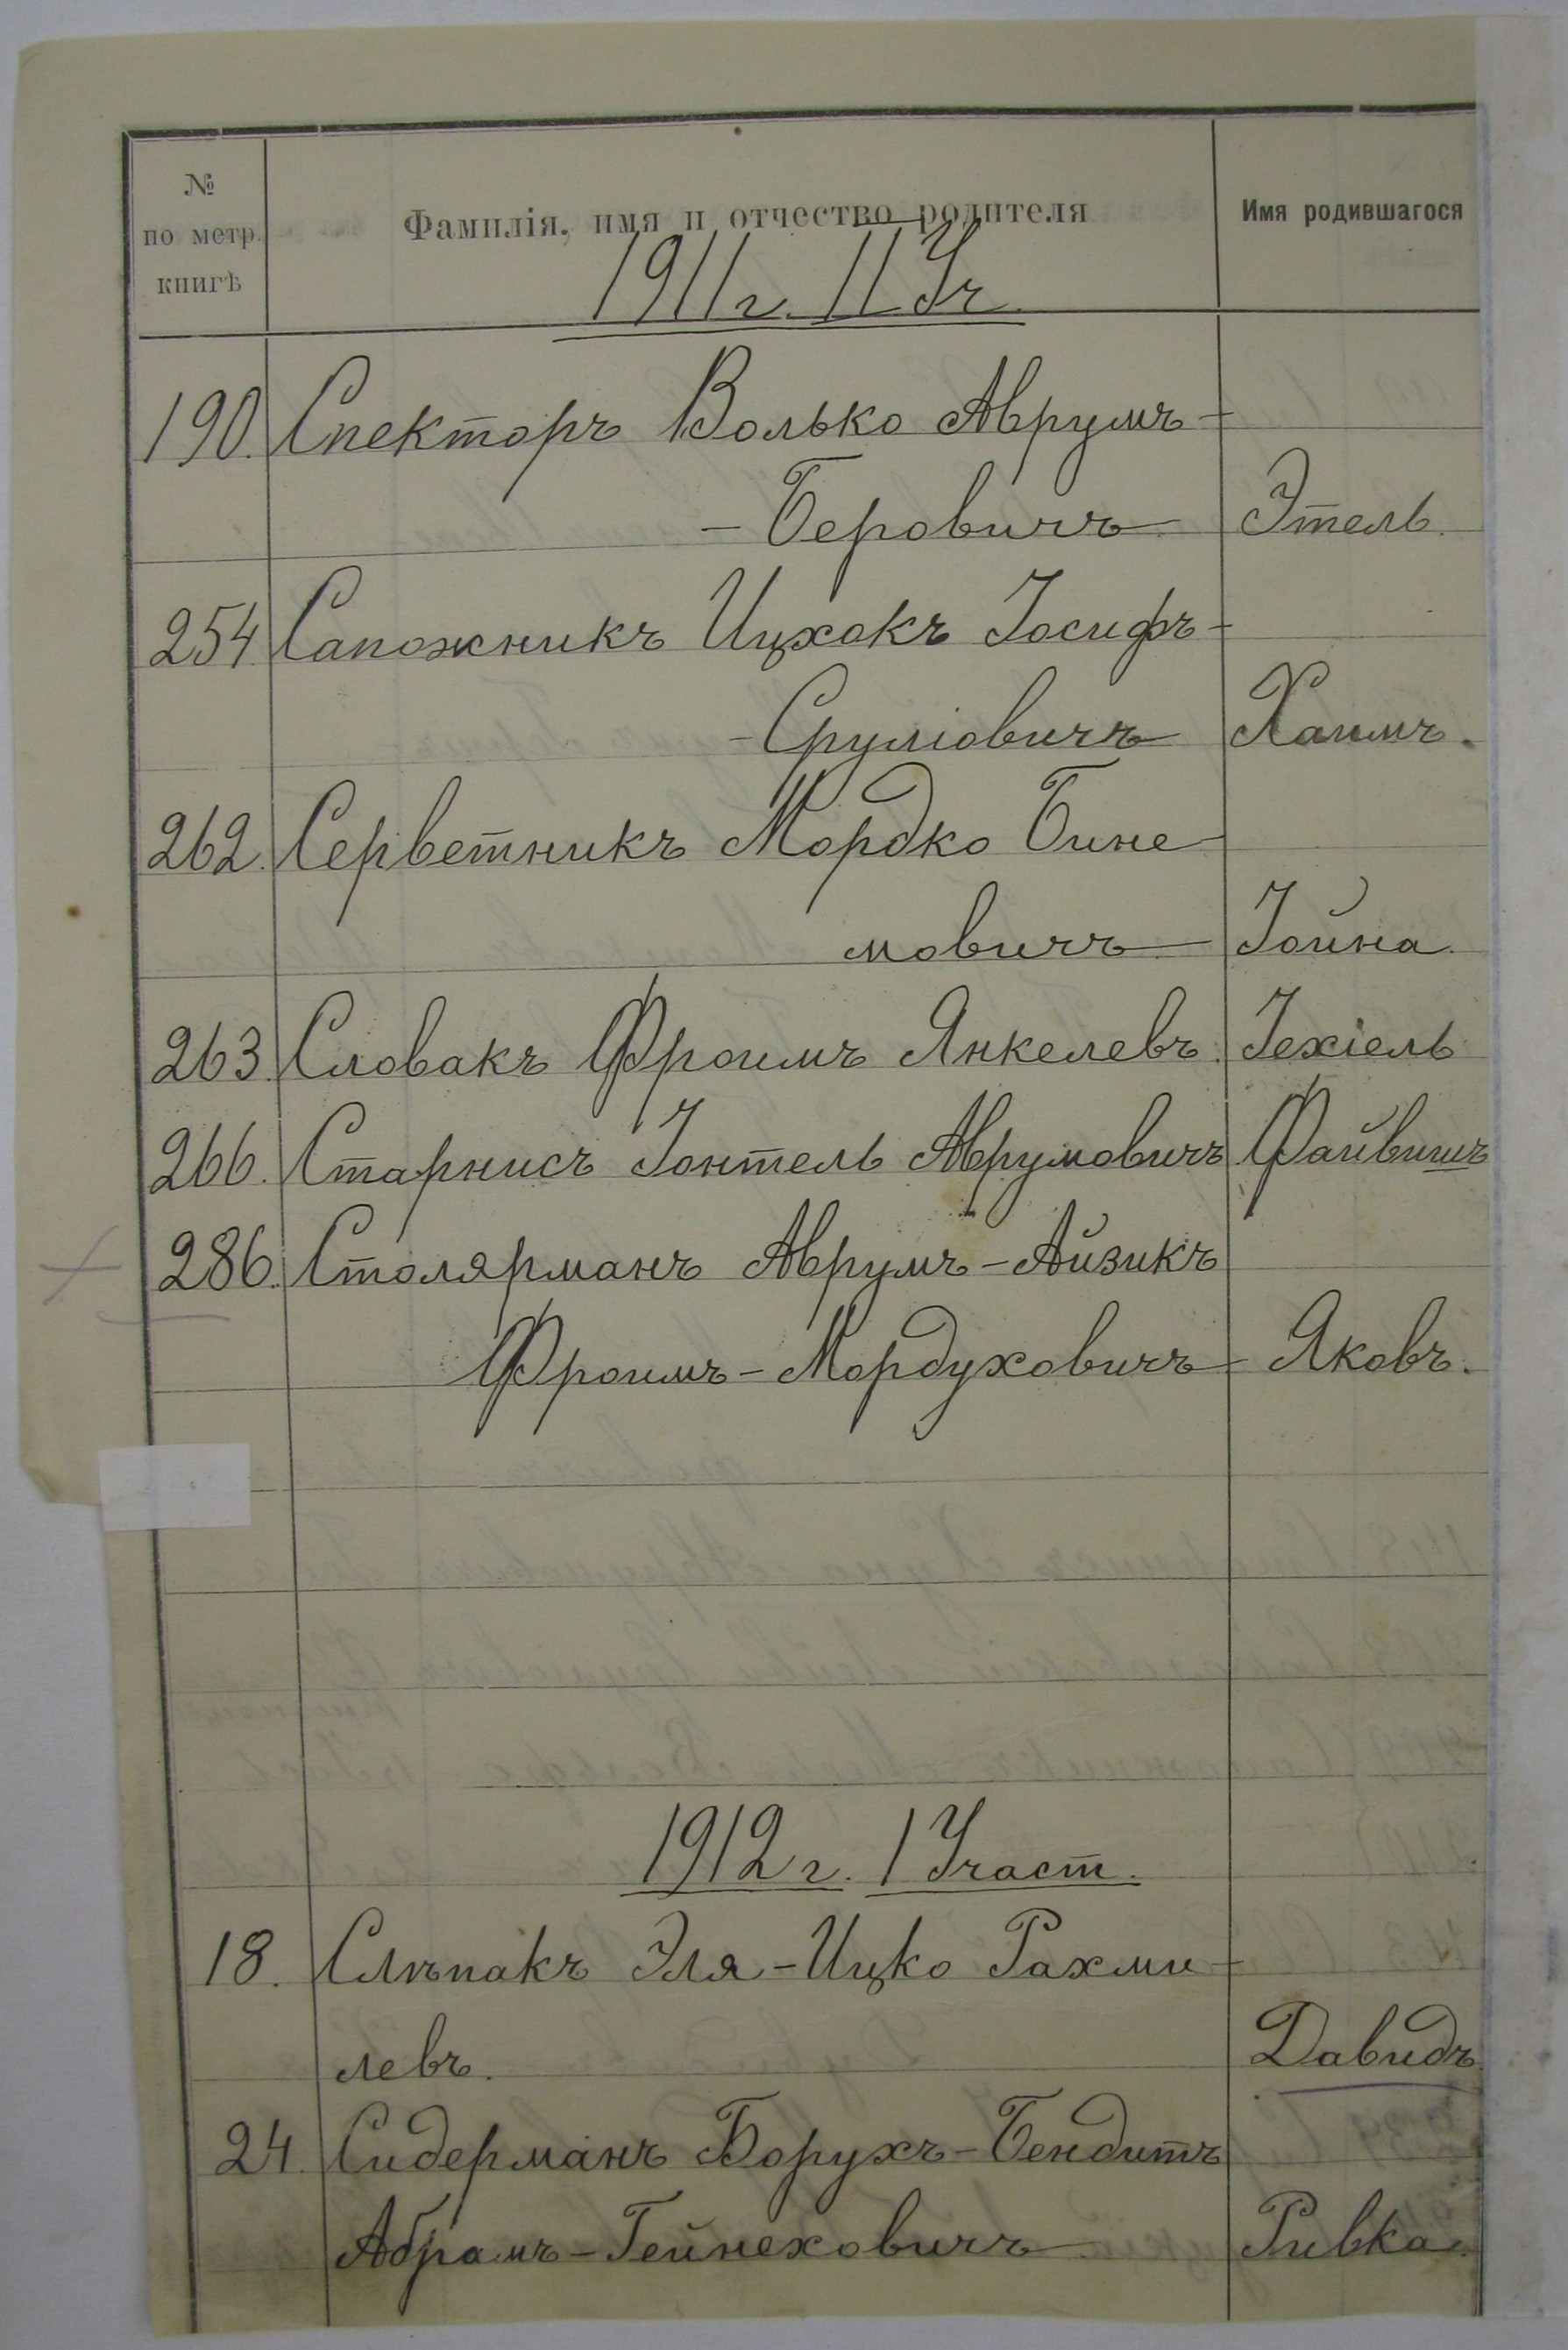 №
по метр.
книгѣ
Фамилія, имя и отчество родителя
Имя родившагося
1911 г. II Уч.
190. Спекторъ Волько Аврумъ-
-Беровичъ Этель.
254. Сапожникъ Ицхокъ Іосифъ-
-Сруліовичъ Хаимъ.
262. Серветникъ Мордко Бине-
мовичъ Іойна.
263. Словакъ Фроимъ Янкелевъ. Іехіель
266. Старнисъ Іонтель Аврумовичъ Файвишъ
286. Столярманъ Аврумъ-Айзикъ
Фроимъ-Мордуховичъ Яковъ.
1912 г. I Участ.
18. Слѣпакъ Эля-Ицко Рахми-
левъ. Давидъ
24. Сидерманъ Борухъ-Бендитъ
Абрамъ-Гейнеховичъ Ривка.